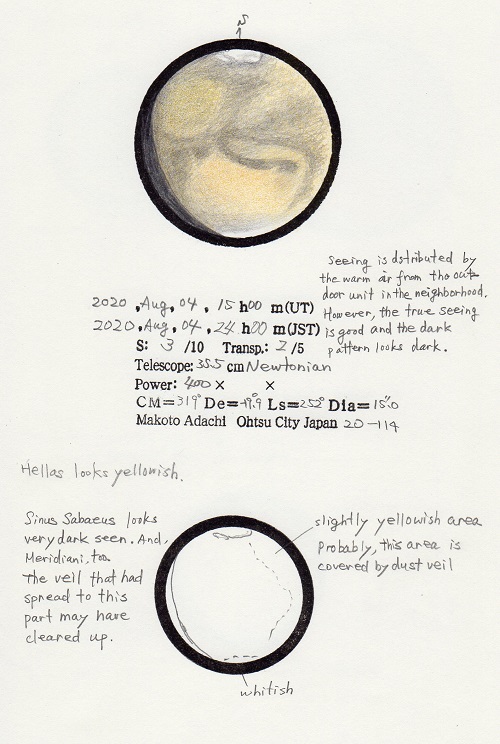 S
Seeing is dstributed by
the warm air from tho out-
door unit in the neighborhood.
However, the true seeing
is good and the dark
pattern looks dark.
2020 , Aug, 04 , 15 h00 m(UT)
2020 , Aug, 04 , 24 h00 m(JST)
S: 3 /10 Transp.: 2 /5
Telescope: 355 cm Newtonian
Power: 400 × ×
CM=319° De= Ls=252° Dia=15".0
Makoto Adachi Ohtsu City Japan 20-114
Hellas looks yellowish.
Sinus Sabaeus looks
very dark seen. And,
Meridiani, too.
The veil that had
spread to this
part may have
cleared up.
slightly yellowish area
Probably, this area is
covered by dust veil
whitish